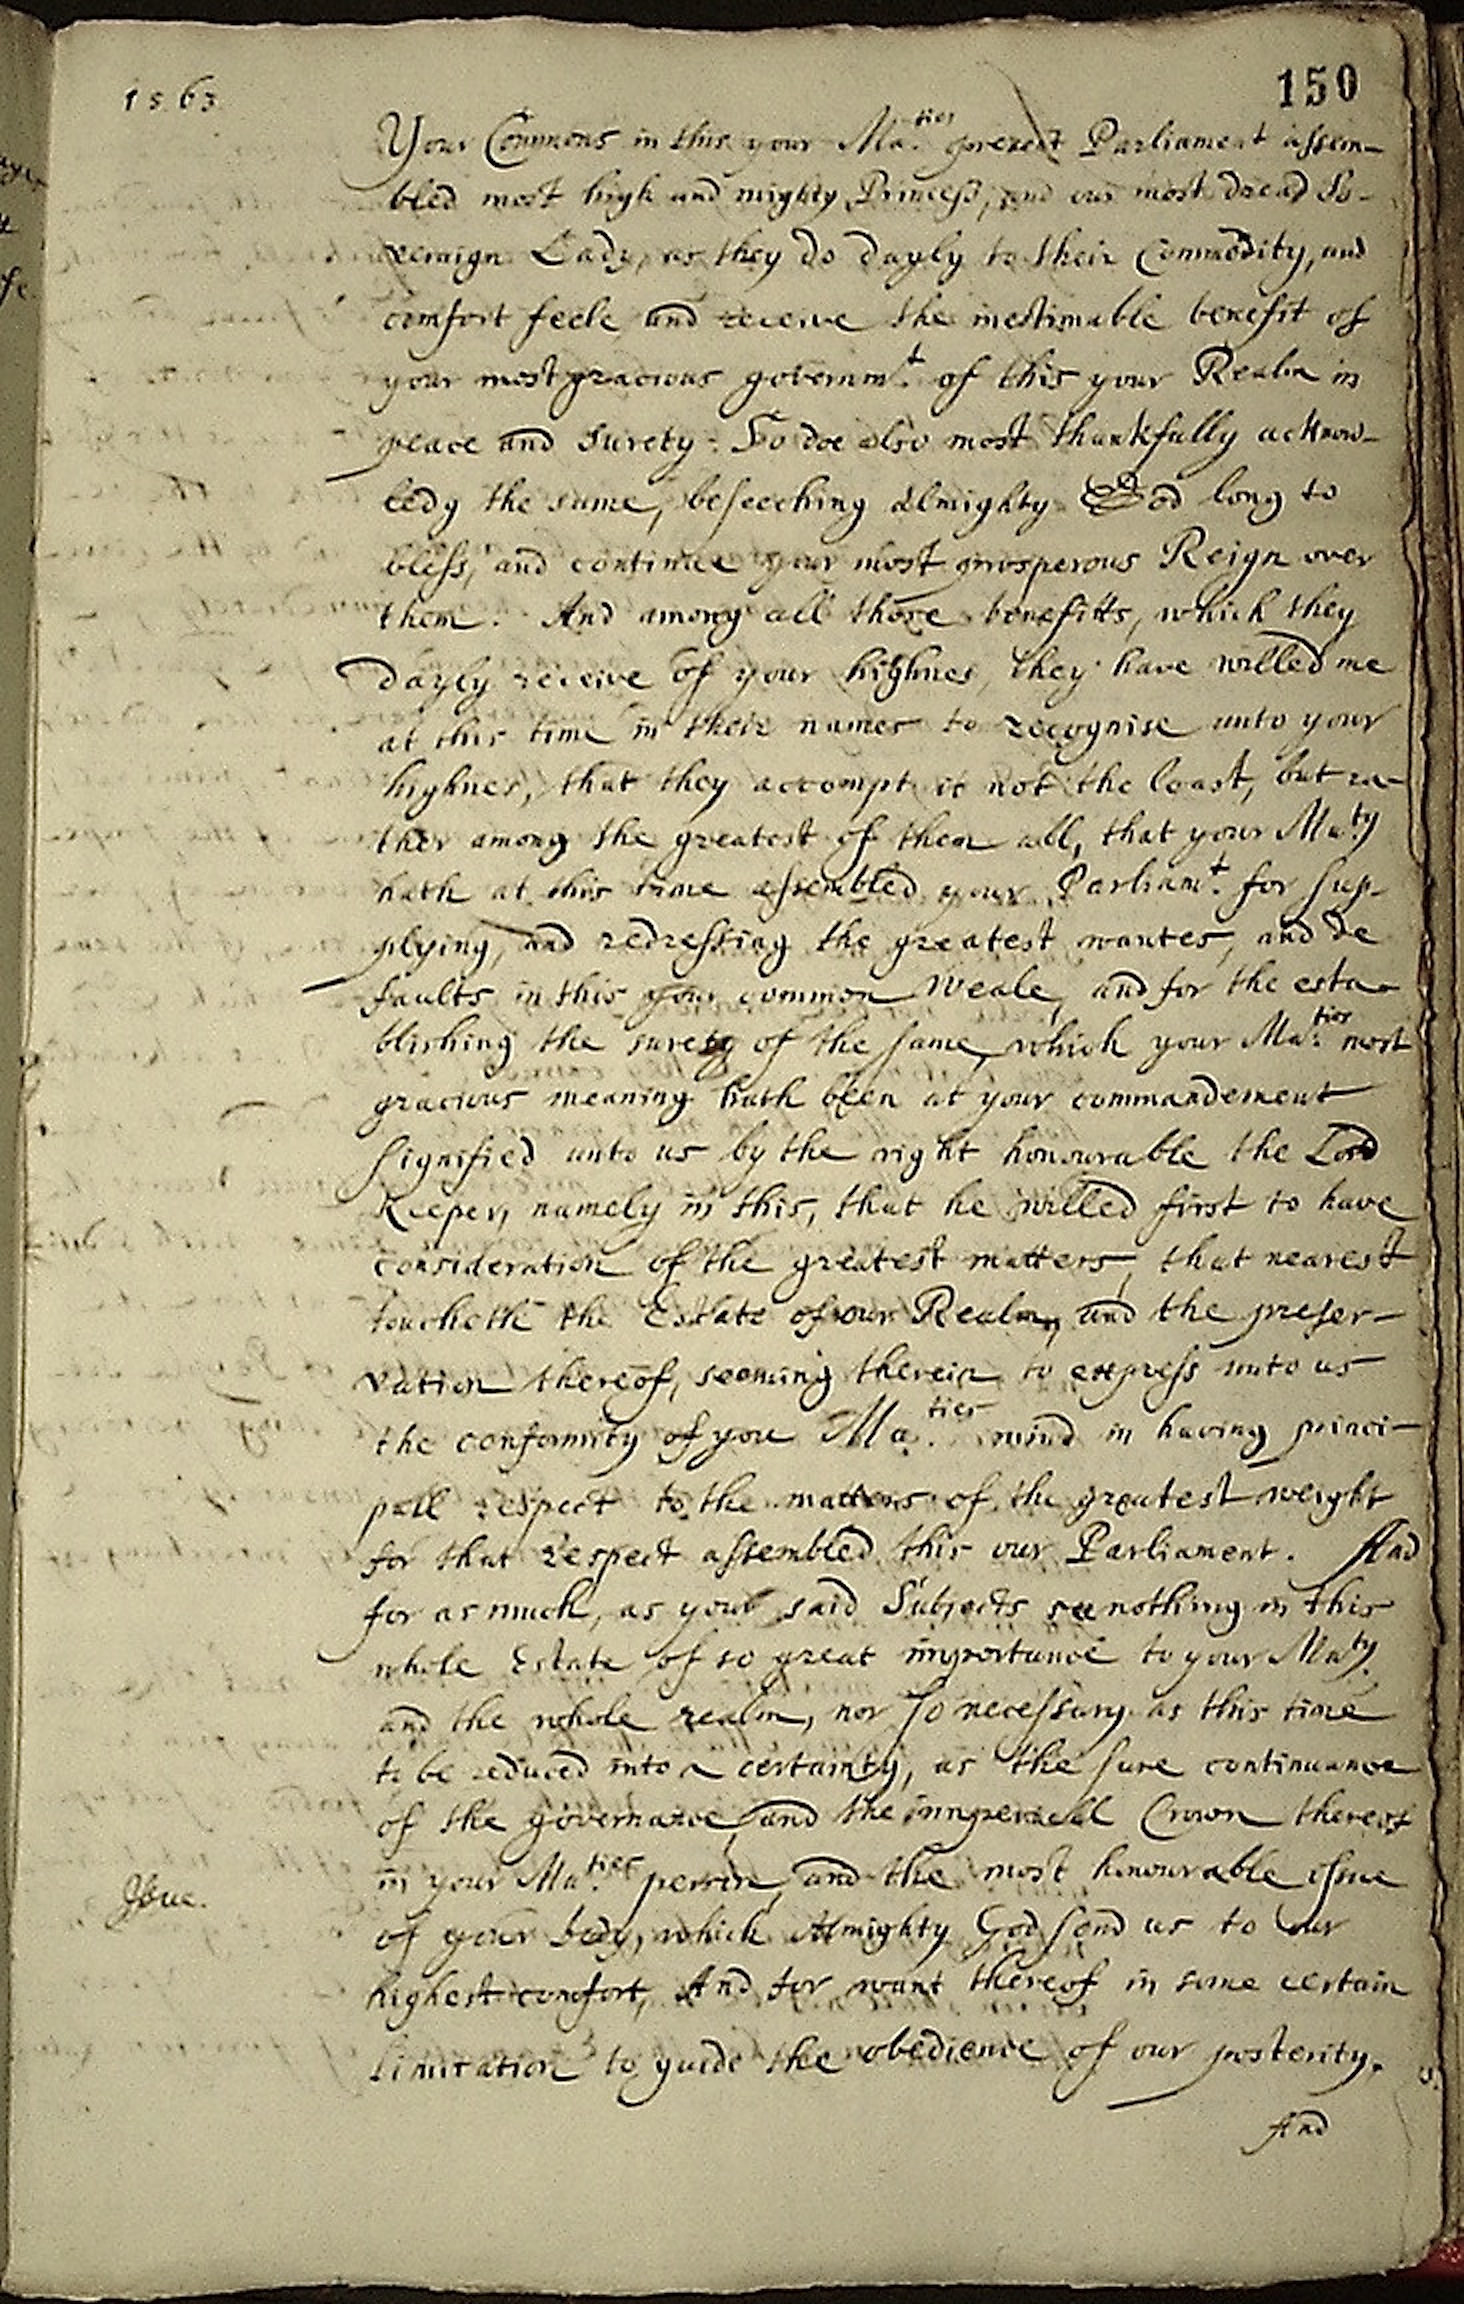 1563
150
Your Commons in this your Ma.ties present Parliament assem-
bled most high and mighty Princess, and our most dread So-
veraign Lady, as they do dayly to their Commodity, and
comfort feele and receive the inestimable benefit of
your most gracious governmt. of this your Realm in
peace and surety. So doe also most thankfully acknow-
ledg the same, beseeching Almighty God long to
bless, and continue your most prosperous Reign over
them. And among all those benefitts, which they
dayly receive of your highnes, they have willed me
at this time in their names to recognise unto your
highnes, that they accompt it not the least, but ra-
ther among the greatest of them all, that your Maty
hath at this time assembled your Parliamt. for sup-
plying, and redressing the greatest wantes, and de
faults in this your common Weale, and for the esta-
blishing the surety of the same, which your Ma.ties most
gracious meaning hath been at your commandement
signified unto us by the right honourable the Lord
Keeper, namely in this, that he willed first to have
consideration of the greatest matters, that nearest
toucheth the Estate of our Realm, and the preser-
vation thereof, seeming therein to express unto us
the conformity of your Ma.ties mind in having princi-
pall respect to the matters of the greatest weight
for that respect assembled this our Parliament. And
for as much, as your said Subjects see nothing in this
whole Estate of so great importance to your Maty.
and the whole realm, nor so necessary as this time
to be reduced into a certainty, as the sure continuance
of the governance, and the imperiall Crown thereof
in your Ma.ties person, and the most honourable issue
Issue.
of your body, which Almighty God send us to our
highest comfort, And for want thereof in some certain
limitation to guide the obedience of our posterity.
And